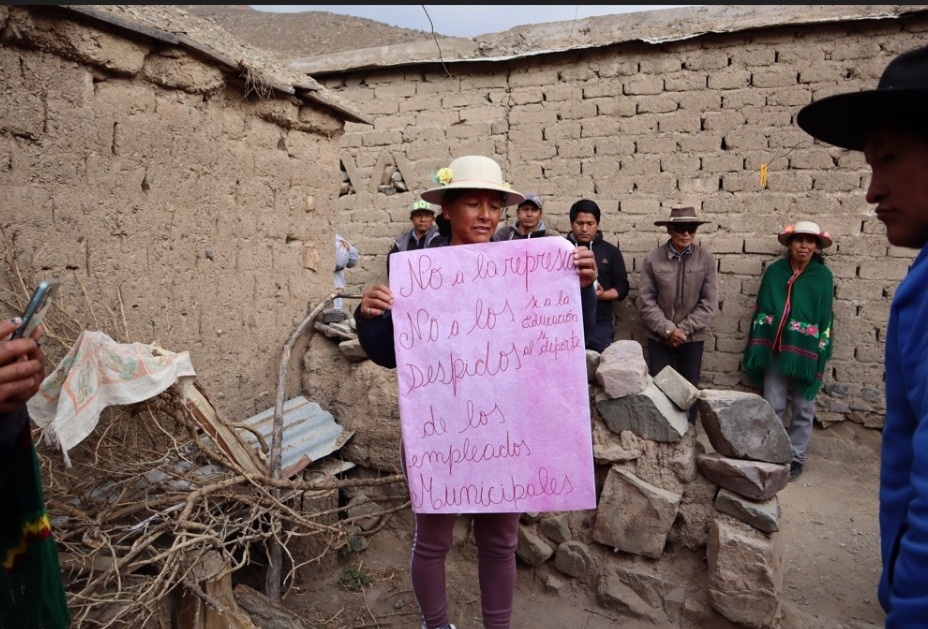 No a la represa
No a los
Despidos
de los
empleados
Municipales
si a la
Educación
si
al deporte